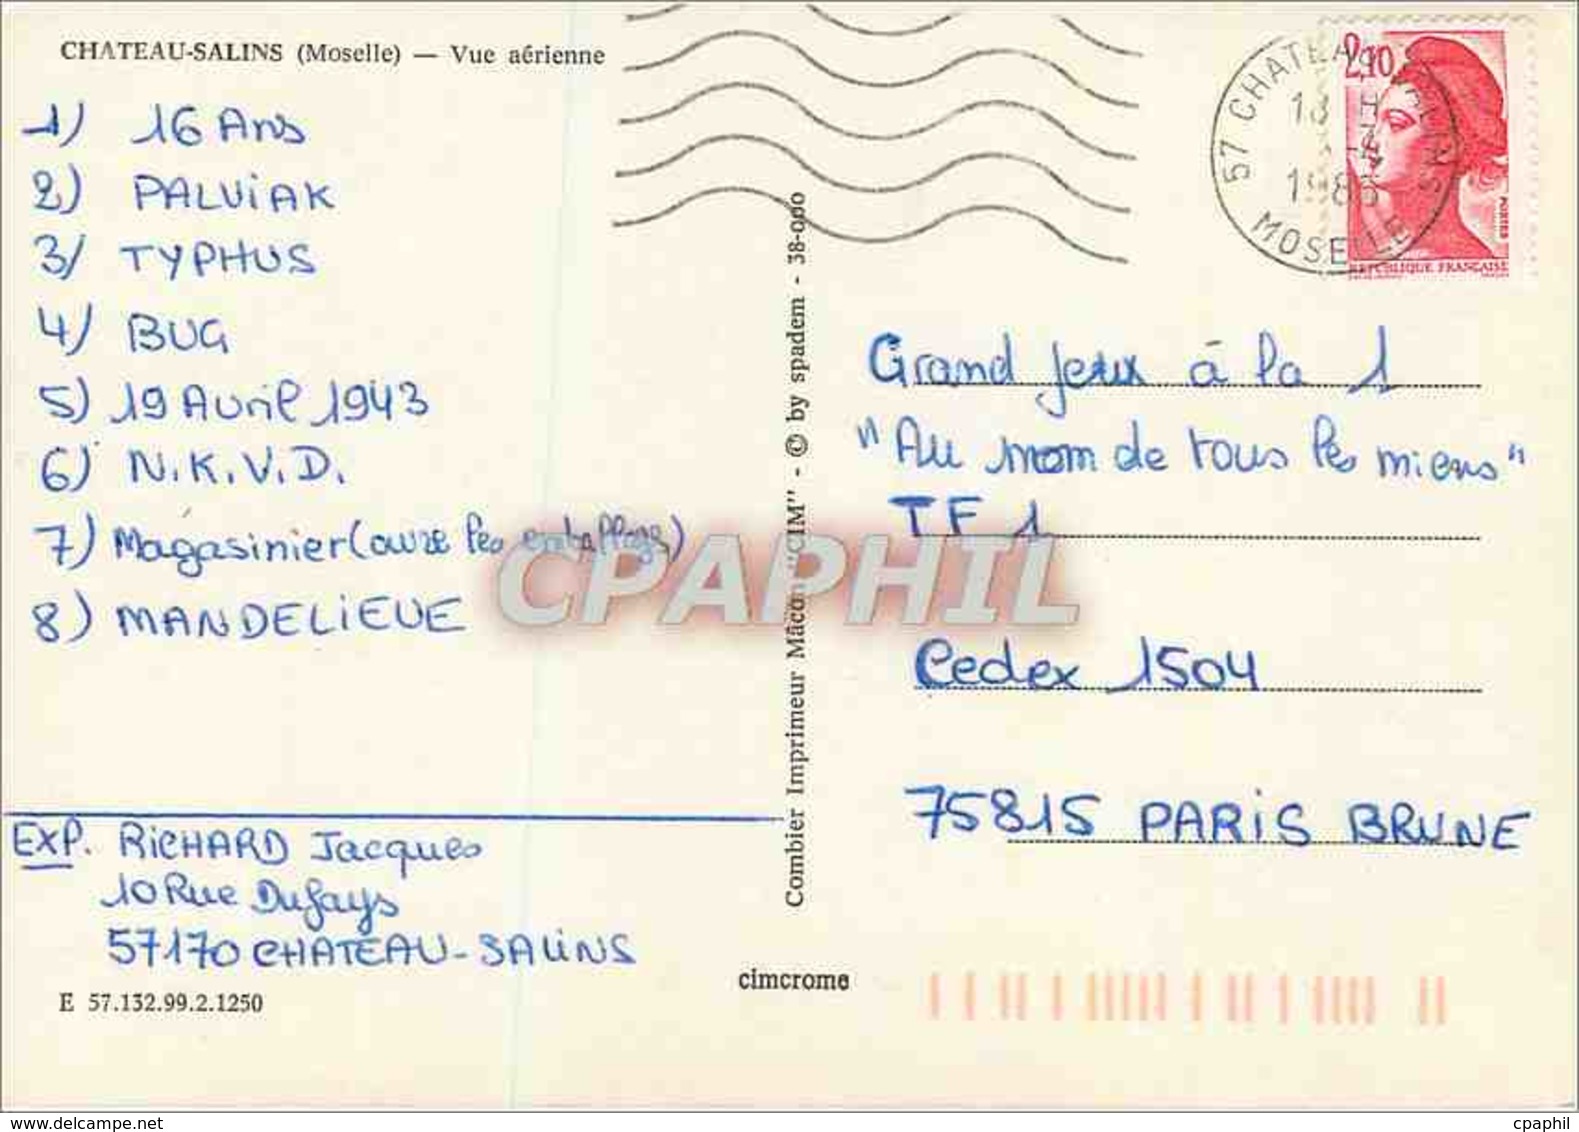 CHATEAU-SALINS (Moselle) — Vue aérienne
1) 16 Ans
2) PALVIAK
3) TYPHUS
4) BUG
5) 19 Avril 1943
6) N.K.V.D.
7) Magasinier (avec les emballages)
8) MANDELIEUE
EXP. RICHARD Jacques
10 Rue Dufays
57170 CHATEAU-SALINS
E 57.132.99.2.1250
Combier Imprimeur Mâcon "CIM" - © by spadem - 38-000
cimcrome
57 CHATEAU SALINS
18 H
1986
MOSELLE
2,10
POSTES
REPUBLIQUE FRANÇAISE
Grand Jeux à la 1
"Au nom de tous les miens"
TF 1
Cedex 1504
75815 PARIS BRUNE
CPAPHIL
www.delcampe.net
cpaphil